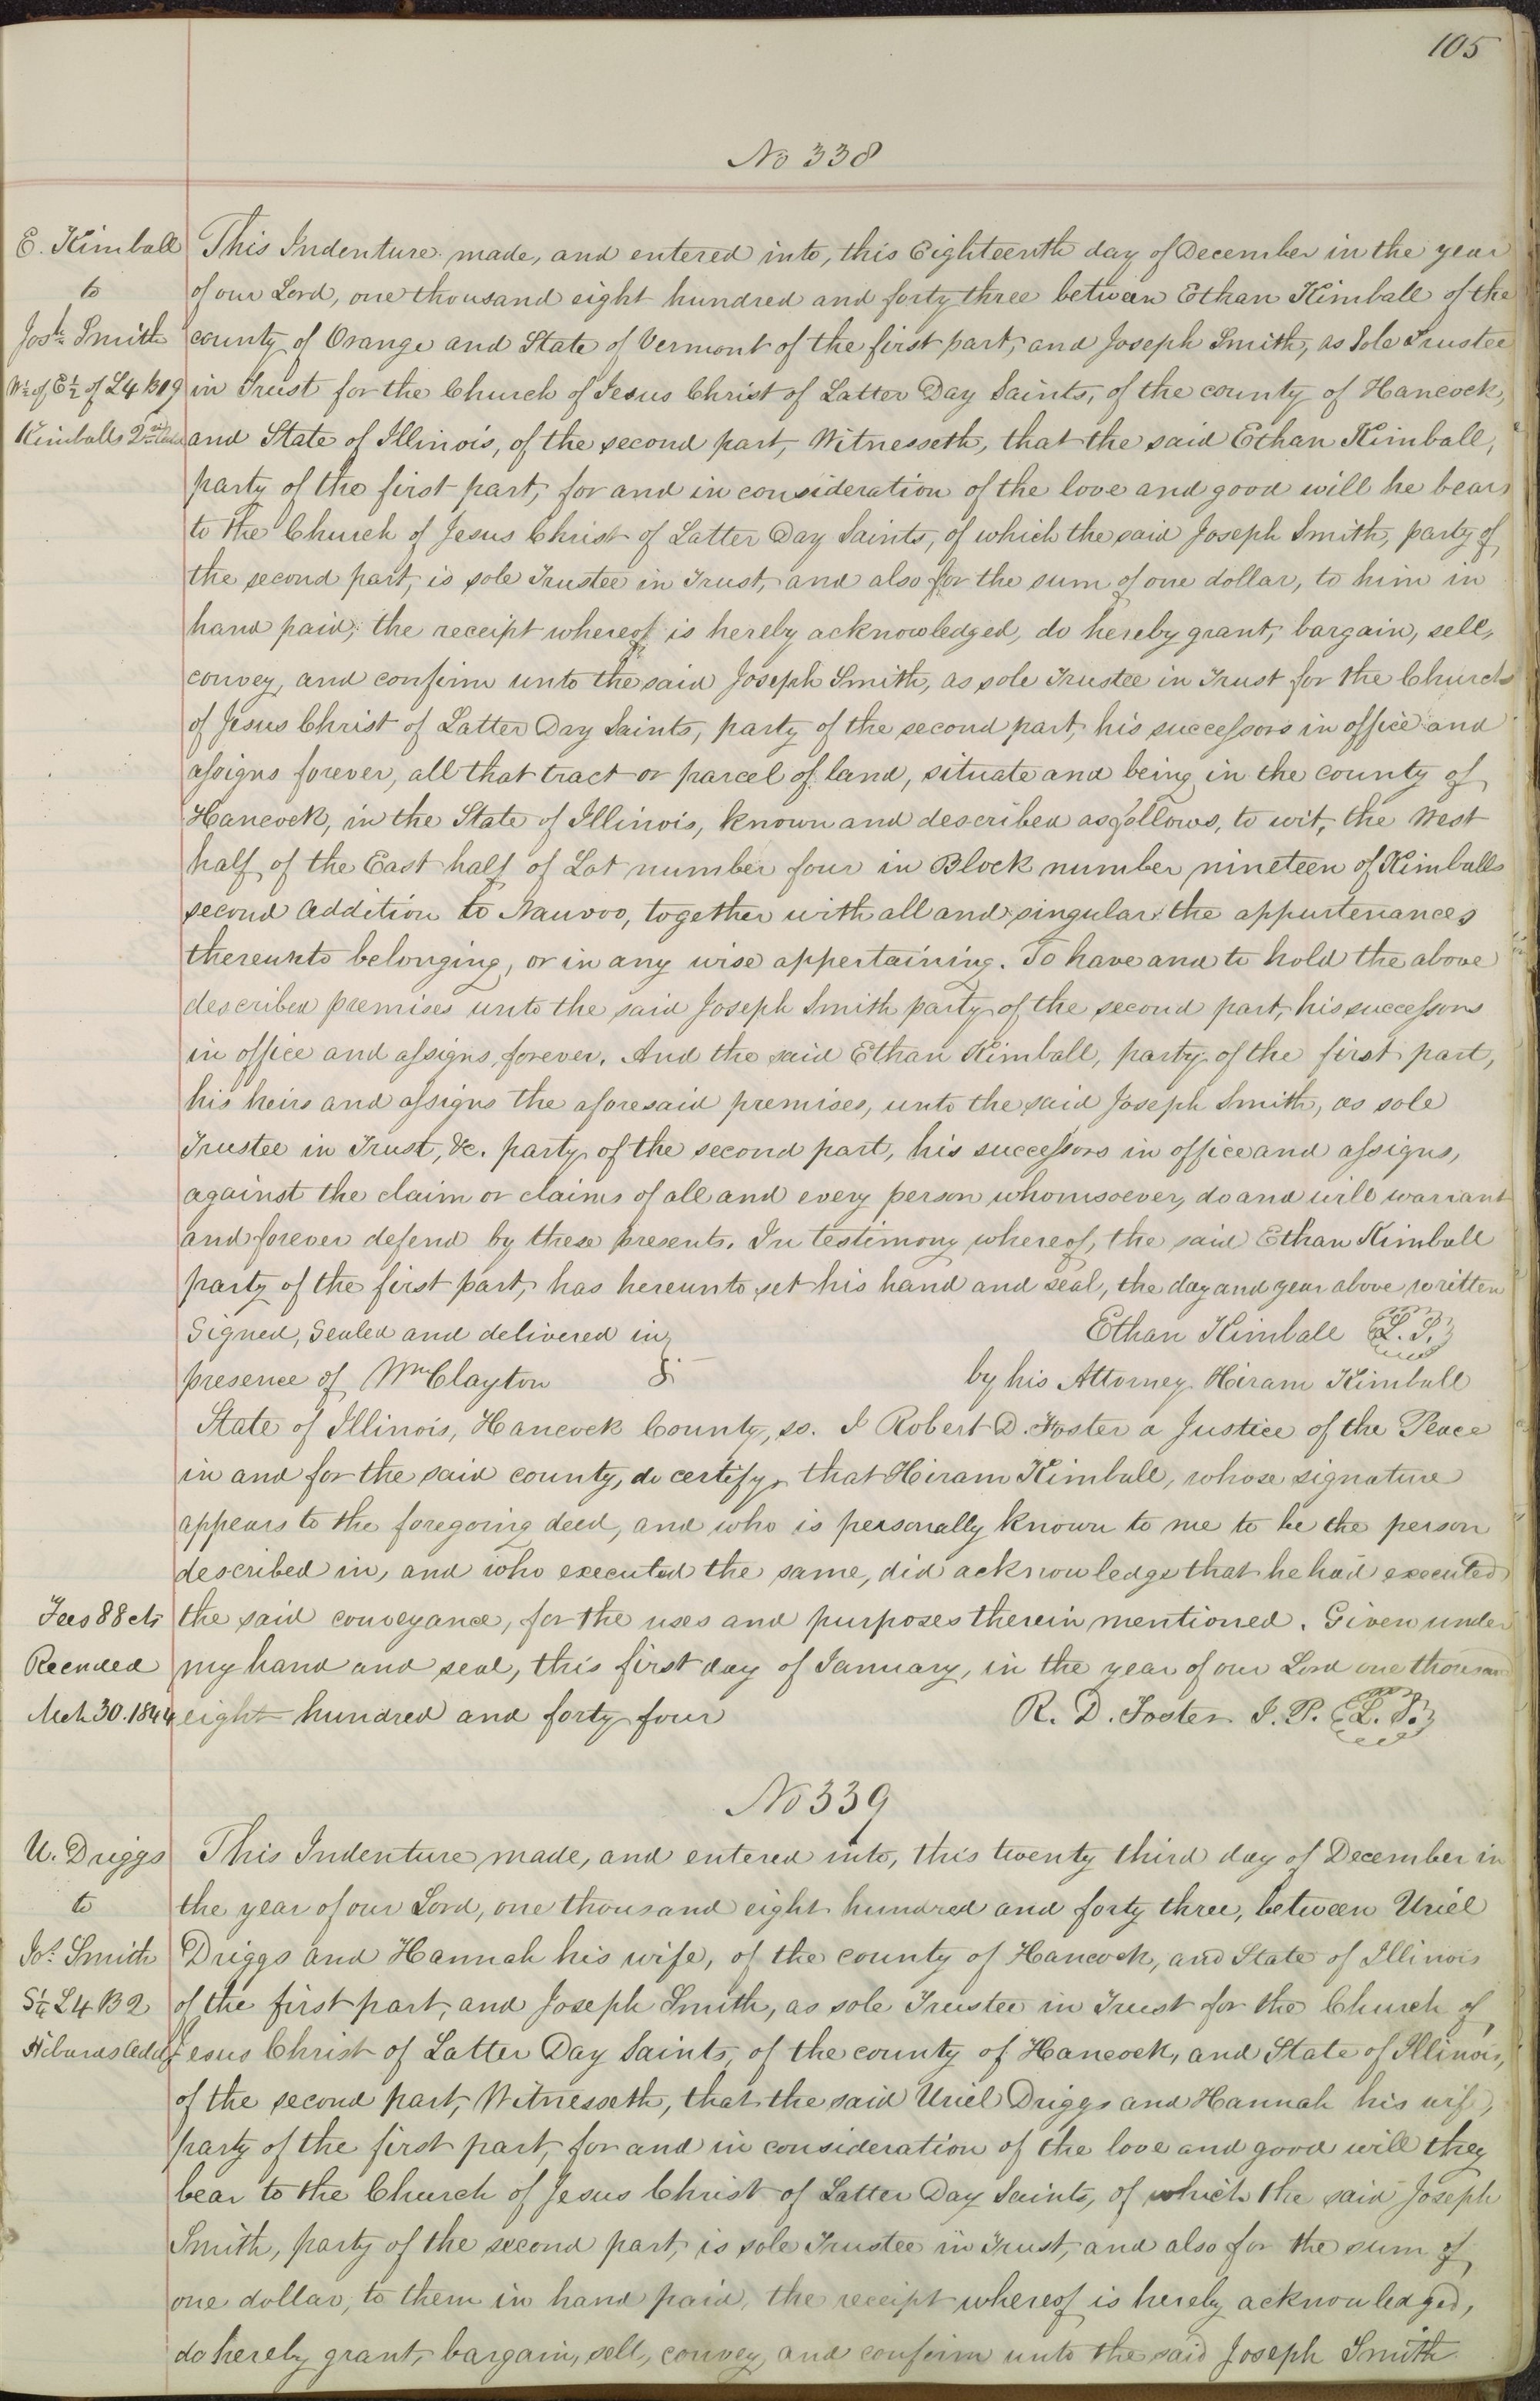 105
No 338
E. Kimball
to
Josh. Smith
W ½ of E ½ of L 4 B 19
Kimballs 2nd
This Indenture made, and entered into, this Eighteenth day of December in the year
of our Lord, one thousand eight hundred and forty three between Ethan Kimball of the
county of Orange and State of Vermont of the first part, and Joseph Smith, as Sole Trustee
in Trust for the Church of Jesus Christ of Latter Day Saints, of the county of Hancock,
and State of Illinois, of the second part, Witnesseth, that the said Ethan Kimball,
party of the first part, for and in consideration of the love and good will he bears
to the Church of Jesus Christ of Latter Day Saints, of which the said Joseph Smith, party of
the second part, is sole Trustee in Trust, and also for the sum of one dollar, to him in
hand paid, the receipt whereof is hereby acknowledged, do hereby grant, bargain, sell,
convey, and confirm unto the said Joseph Smith, as sole Trustee in Trust for the Church
of Jesus Christ of Latter Day Saints, party of the second part, his successors in office and
assigns forever, all that tract or parcel of land, situate and being in the county of
Hancock, in the State of Illinois, known and described as follows, to wit, the West
half of the East half of Lot number four in Block number nineteen of Kimballs
second addition to Nauvoo, together with all and singular the appurtenances
thereunto belonging, or in any wise appertaining. To have and to hold the above
described premises unto the said Joseph Smith party of the second part, his successors
in office and assigns, forever. And the said Ethan Kimball, party of the first part,
his heirs and assigns the aforesaid premises, unto the said Joseph Smith, as sole
Trustee in Trust, &c. party of the second part, his successors in office and assigns,
against the claim or claims of all and every person whomsoever, do and will warrant
and forever defend by these presents. In testimony whereof, the said Ethan Kimball
party of the first part, has hereunto set his hand and seal, the day and year above written
Signed, Sealed and delivered in
Ethan Kimball L. S.
presence of Wm Clayton
by his Attorney Hiram Kimball
State of Illinois, Hancock County, ss. I Robert D. Foster a Justice of the Peace
in and for the said county, do certify, that Hiram Kimball, whose signature
appears to the foregoing deed, and who is personally known to me to be the person
described in, and who executed the same, did acknowledge that he had executed
Fees 88 cts
the said conveyance, for the uses and purposes therein mentioned. Given under
Recorded
my hand and seal, this first day of January, in the year of our Lord one thousand
Mch 30. 1844
eight hundred and forty four
R. D. Foster J. P. L. S.
No 339
U. Driggs
to
Jos. Smith
S ½ L 4 B 2
Hibards Addn
This Indenture made, and entered into, this twenty third day of December in
the year of our Lord, one thousand eight hundred and forty three, between Uriel
Driggs and Hannah his wife, of the county of Hancock, and State of Illinois
of the first part, and Joseph Smith, as sole Trustee in Trust for the Church of
Jesus Christ of Latter Day Saints, of the county of Hancock, and State of Illinois,
of the second part, Witnesseth, that the said Uriel Driggs and Hannah his wife,
party of the first part, for and in consideration of the love and good will they
bear to the Church of Jesus Christ of Latter Day Saints, of which the said Joseph
Smith, party of the second part, is sole Trustee in Trust, and also for the sum of
one dollar, to them in hand paid, the receipt whereof is hereby acknowledged,
do hereby grant, bargain, sell, convey, and confirm unto the said Joseph Smith